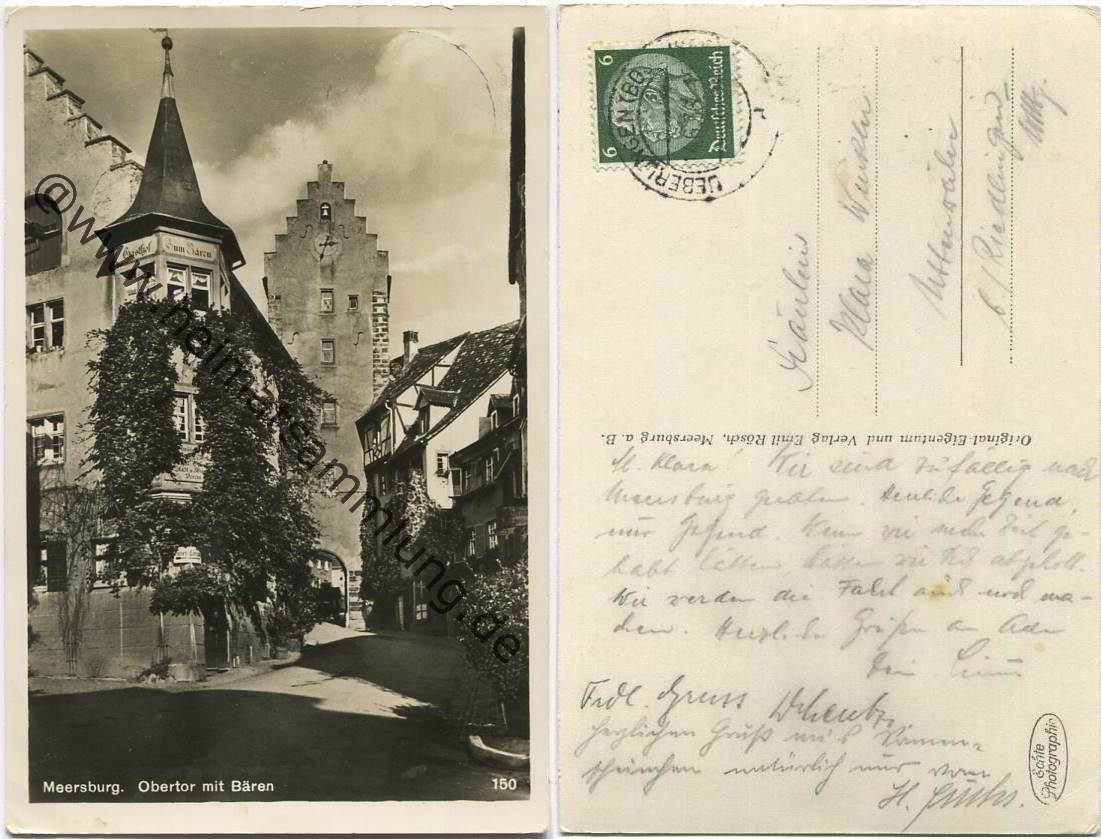 Gasthof Zum Bären
@www.heimatsammlung.de
Meersburg. Obertor mit Bären
150
6 Deutsches Reich 6
UEBERLINGEN (BO
Fräulein
Klara Winkler
Uttenweiler
b/Riedlingen
Wttbg.
Original-Eigentum und Verlag Emil Rösch, Meersburg a. B.
Klara! Wir sind zufällig nach
Meersburg gefahren. Herrliche Gegend,
nur Gegend. Wenn wir mehr Zeit ge-
habt hätten hätten wir Dich abgeholt.
Wir werden die Fahrt auch noch ma-
chen. Herzliche Grüße an Alle
Dein
Frdl. Gruss
herzlichen Gruß mit Sonnen-
scheinchen natürlich nur vom
H. Fuchs.
Echte Photographie